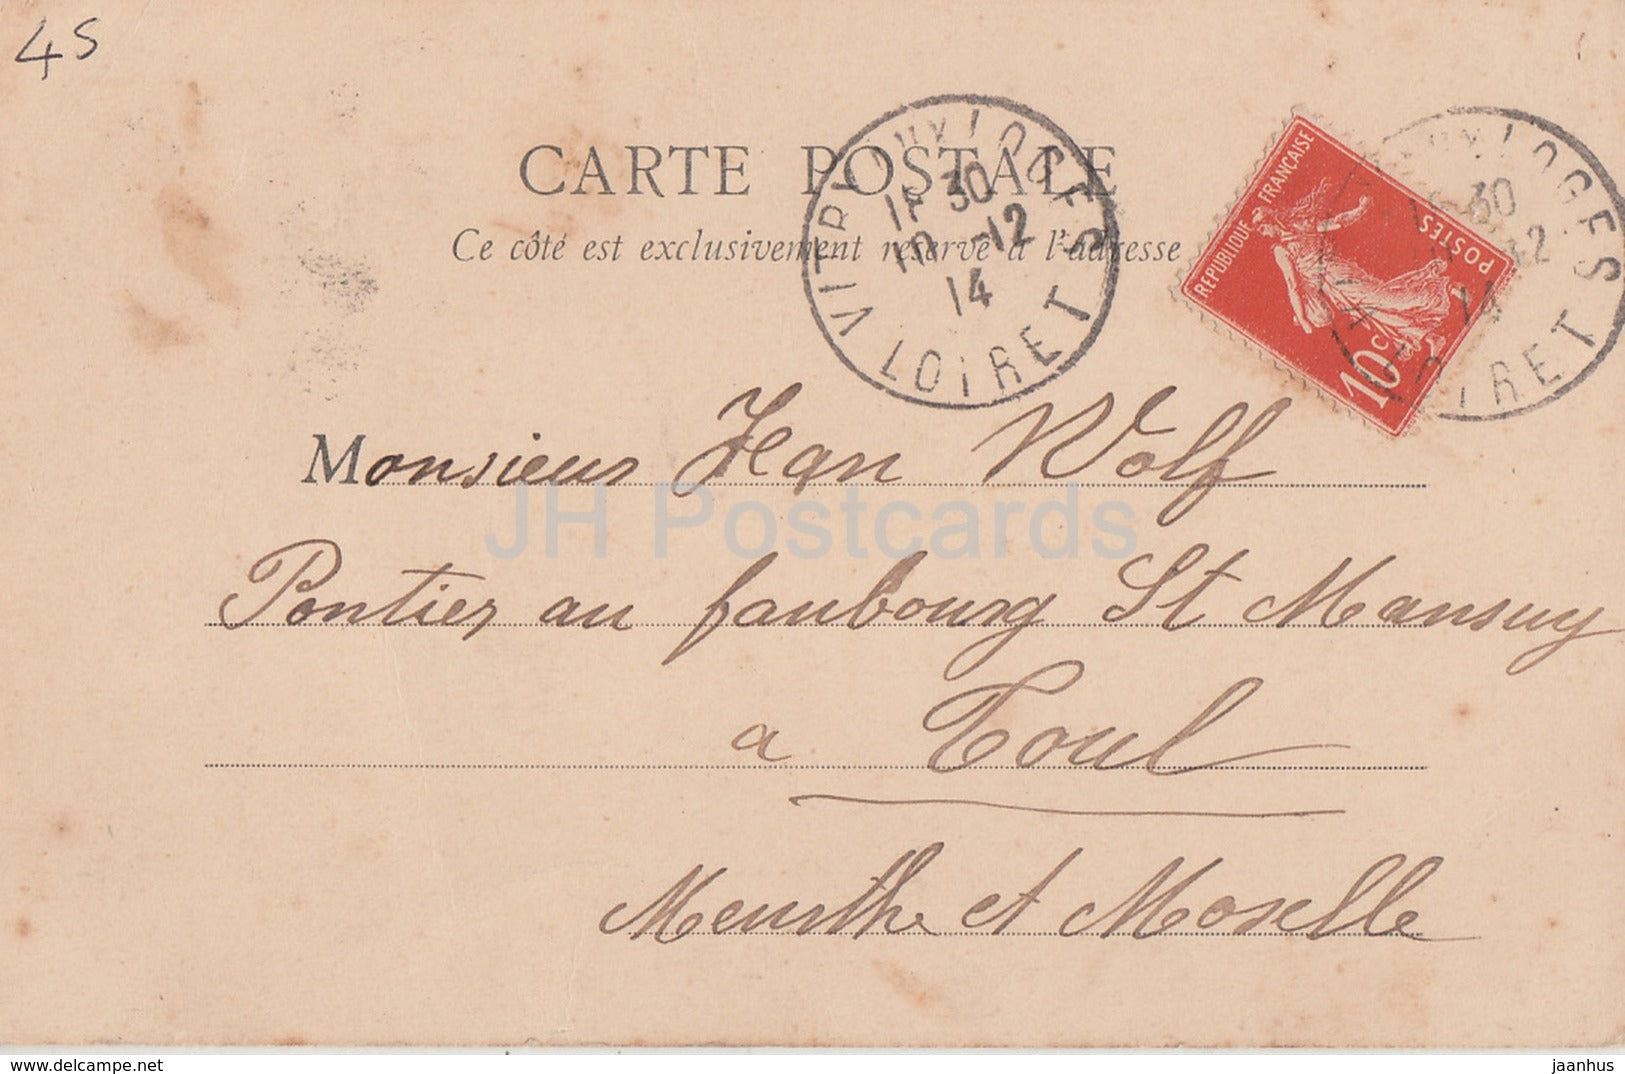 45
CARTE POSTALE
Ce côté est exclusivement réservé à l'adresse
VITRY AUX LOGES
30
10 -12
14
LOIRET
REPUBLIQUE FRANÇAISE
POSTES
10c
30
12
14
LOIRET
Monsieur Jean Wolf
JH Postcards
Pontier au faubourg St Mansuy
a Toul
Meurthe et Moselle
http://www.delcampe.net
jaanhus